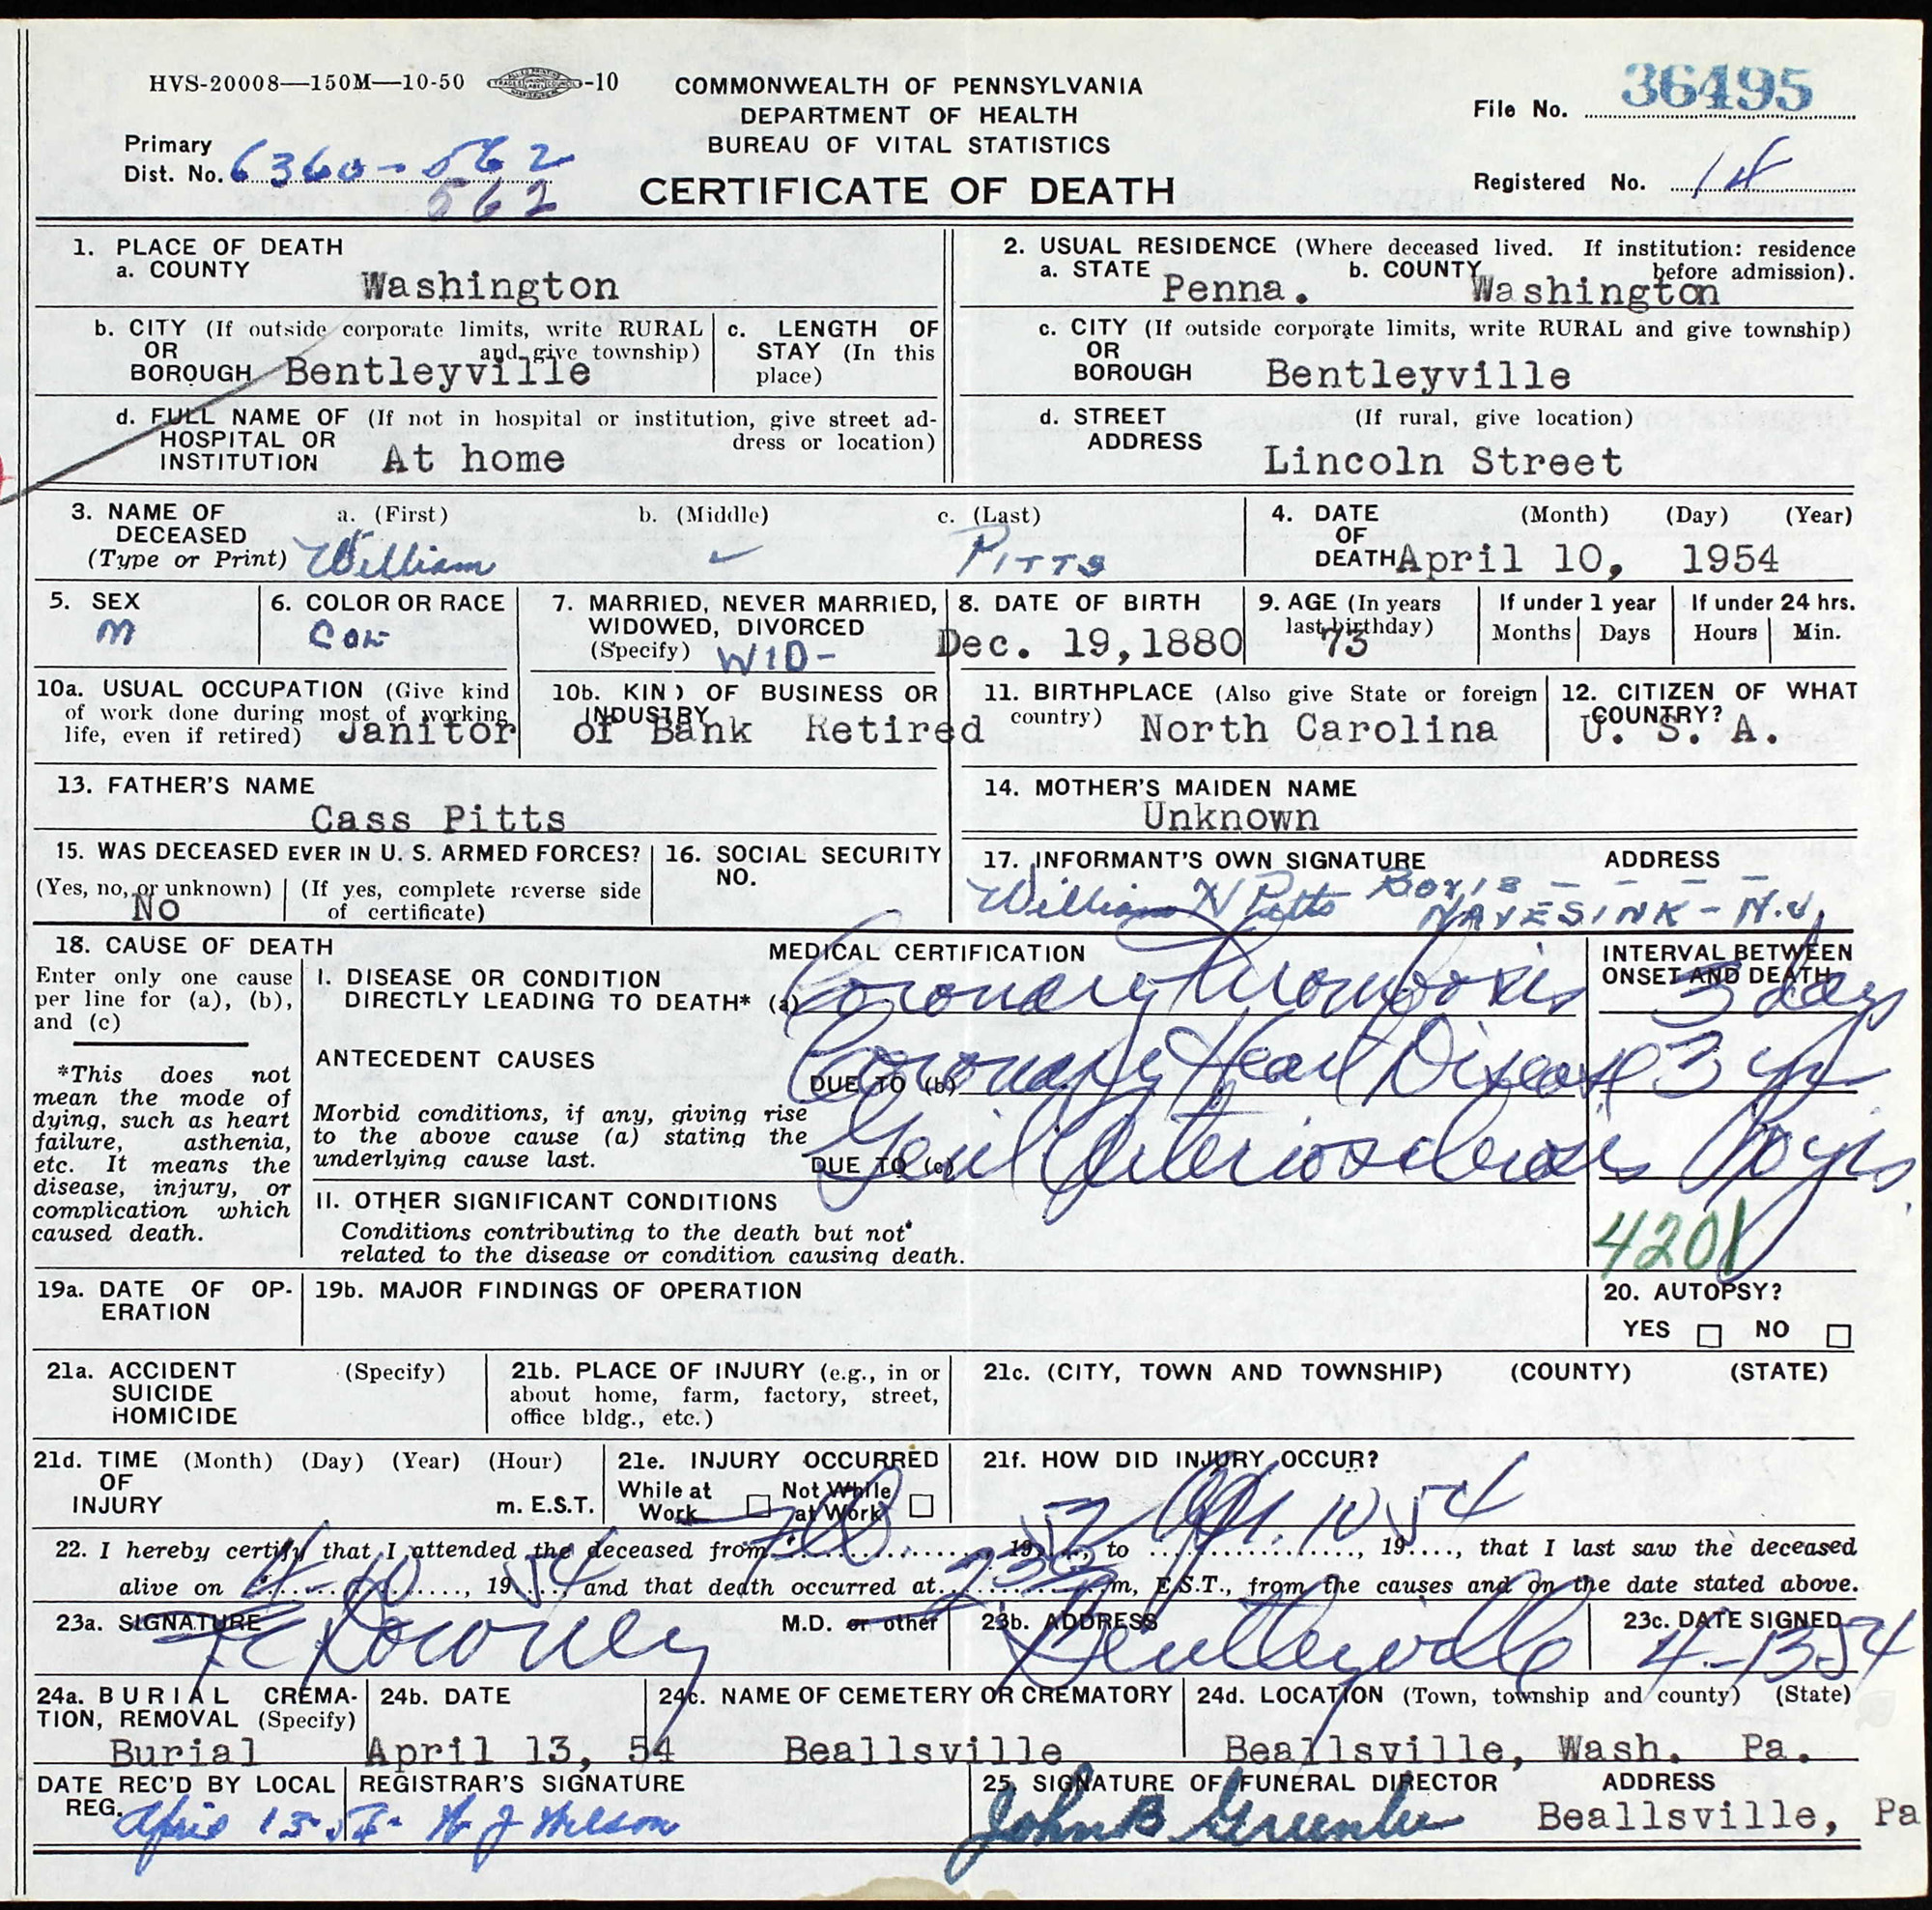 HVS-20008—150M—10-50 -10
COMMONWEALTH OF PENNSYLVANIA
DEPARTMENT OF HEALTH
BUREAU OF VITAL STATISTICS
CERTIFICATE OF DEATH
File No. 36495
Primary
Dist. No. 6360-562
562
Registered No. 14
1. PLACE OF DEATH
a. COUNTY
Washington
b. CITY (If outside corporate limits, write RURAL
OR and give township)
BOROUGH Bentleyville
c. LENGTH OF
STAY (In this
place)
d. FULL NAME OF (If not in hospital or institution, give street ad-
HOSPITAL OR dress or location)
INSTITUTION At home
2. USUAL RESIDENCE (Where deceased lived. If institution: residence
a. STATE b. COUNTY before admission).
Penna. Washington
c. CITY (If outside corporate limits, write RURAL and give township)
OR
BOROUGH Bentleyville
d. STREET (If rural, give location)
ADDRESS
Lincoln Street
3. NAME OF a. (First) b. (Middle) c. (Last)
DECEASED
(Type or Print) William PITTS
4. DATE (Month) (Day) (Year)
OF
DEATH April 10, 1954
5. SEX
M
6. COLOR OR RACE
COL
7. MARRIED, NEVER MARRIED,
WIDOWED, DIVORCED
(Specify) WID-
8. DATE OF BIRTH
Dec. 19,1880
9. AGE (In years
last birthday)
73
If under 1 year
Months Days
If under 24 hrs.
Hours Min.
10a. USUAL OCCUPATION (Give kind
of work done during most of working
life, even if retired) Janitor
10b. KIND OF BUSINESS OR
INDUSTRY
of Bank Retired
11. BIRTHPLACE (Also give State or foreign
country) North Carolina
12. CITIZEN OF WHAT
COUNTRY?
U. S. A.
13. FATHER'S NAME
Cass Pitts
14. MOTHER'S MAIDEN NAME
Unknown
15. WAS DECEASED EVER IN U. S. ARMED FORCES?
(Yes, no, or unknown) (If yes, complete reverse side
No of certificate)
16. SOCIAL SECURITY
NO.
17. INFORMANT'S OWN SIGNATURE ADDRESS
William N Pitts Box 18 - - - -
NAVESINK - N.J.
18. CAUSE OF DEATH
Enter only one cause
per line for (a), (b),
and (c)
*This does not
mean the mode of
dying, such as heart
failure, asthenia,
etc. It means the
disease, injury, or
complication which
caused death.
MEDICAL CERTIFICATION
I. DISEASE OR CONDITION
DIRECTLY LEADING TO DEATH* (a) Coronary thrombosis
ANTECEDENT CAUSES
DUE TO (b) Coronary Heart Disease
Morbid conditions, if any, giving rise
to the above cause (a) stating the
underlying cause last.
DUE TO (c) Genl Arteriosclerosis
II. OTHER SIGNIFICANT CONDITIONS
Conditions contributing to the death but not
related to the disease or condition causing death.
INTERVAL BETWEEN
ONSET AND DEATH
3 days
3 yrs
10 yrs.
4201
19a. DATE OF OP-
ERATION
19b. MAJOR FINDINGS OF OPERATION
20. AUTOPSY?
YES NO
21a. ACCIDENT (Specify)
SUICIDE
HOMICIDE
21b. PLACE OF INJURY (e.g., in or
about home, farm, factory, street,
office bldg., etc.)
21c. (CITY, TOWN AND TOWNSHIP) (COUNTY) (STATE)
21d. TIME (Month) (Day) (Year) (Hour)
OF
INJURY m. E.S.T.
21e. INJURY OCCURRED
While at Work Not While at Work
21f. HOW DID INJURY OCCUR?
22. I hereby certify that I attended the deceased from Feb., 1952, to Apr. 10, 1954, that I last saw the deceased
alive on 4-10, 1954 and that death occurred at m, E.S.T., from the causes and on the date stated above.
23a. SIGNATURE M.D. or other
Downey
23b. ADDRESS
Bentleyville
23c. DATE SIGNED
4-13 54
24a. BURIAL CREMA-
TION, REMOVAL (Specify)
Burial
24b. DATE
April 13, 54
24c. NAME OF CEMETERY OR CREMATORY
Beallsville
24d. LOCATION (Town, township and county) (State)
Beallsville, Wash. Pa.
DATE REC'D BY LOCAL
REG. April 13-54-
REGISTRAR'S SIGNATURE
25. SIGNATURE OF FUNERAL DIRECTOR ADDRESS
John B Greenlee Beallsville, Pa